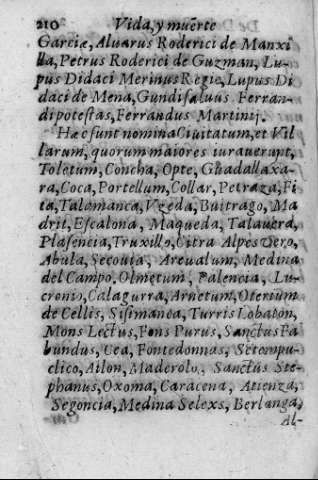 210 Vida, y muerte
Garciæ, Aluarus Roderici de Manxi
lla, Petrus Roderici de Guzman, Lu-
pus Didaci Merinus Regie, Lupus Di
daci de Mena, Gundisaluus Ferran-
di potestas, Ferrandus Martinij.
Hæc sunt nomina Ciuitatum, et Vil
larum, quorum maiores iurauerunt,
Toletum, Concha, Opte, Guadallaxa-
ra, Coca, Portellum, Collar, Petraza, Fi
ta, Talamanca, Vzeda, Buitrago, Ma
dril, Escalona, Maqueda, Talauera,
Plasencia, Truxillo, Citra Alpes vero,
Abula, Secouia, Areualum, Medina
del Campo, Olmetum, Palencia, Lu-
cronio, Calagurra, Arnetum, Oterium
de Cellis, Sisimanca, Turris Lobaton,
Mons Lectus, Fons Purus, Sanctus Fa
bundus, Cea, Fontedonnas, Setempu-
clico, Ailon, Maderolo, Sanctus Ste-
phanus, Oxoma, Caracena, Atienza,
Segoncia, Medina Selexs, Berlanga,
Al-